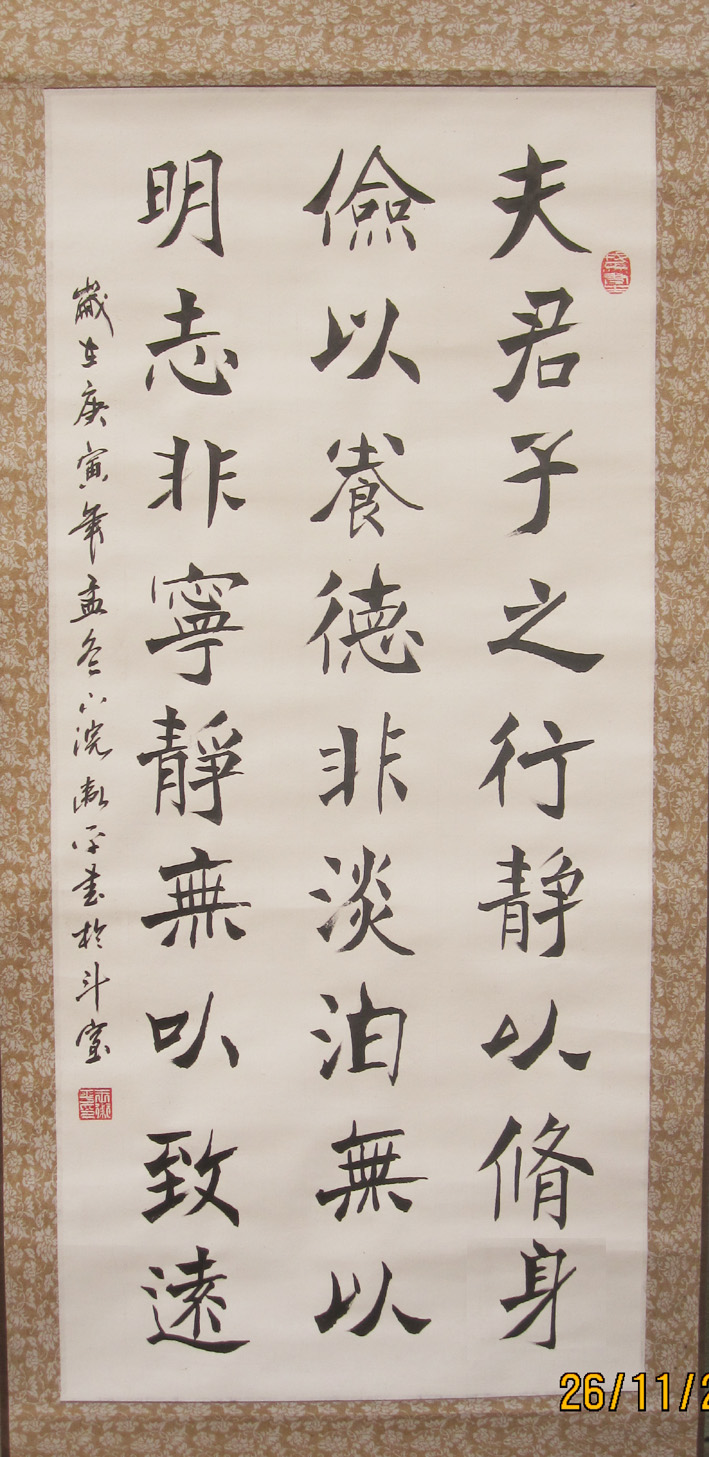 夫君子之行静以脩身
儉以養德非淡泊無以
明志非寧靜無以致遠
歲在庚寅年孟冬
書於斗室
26/11/2